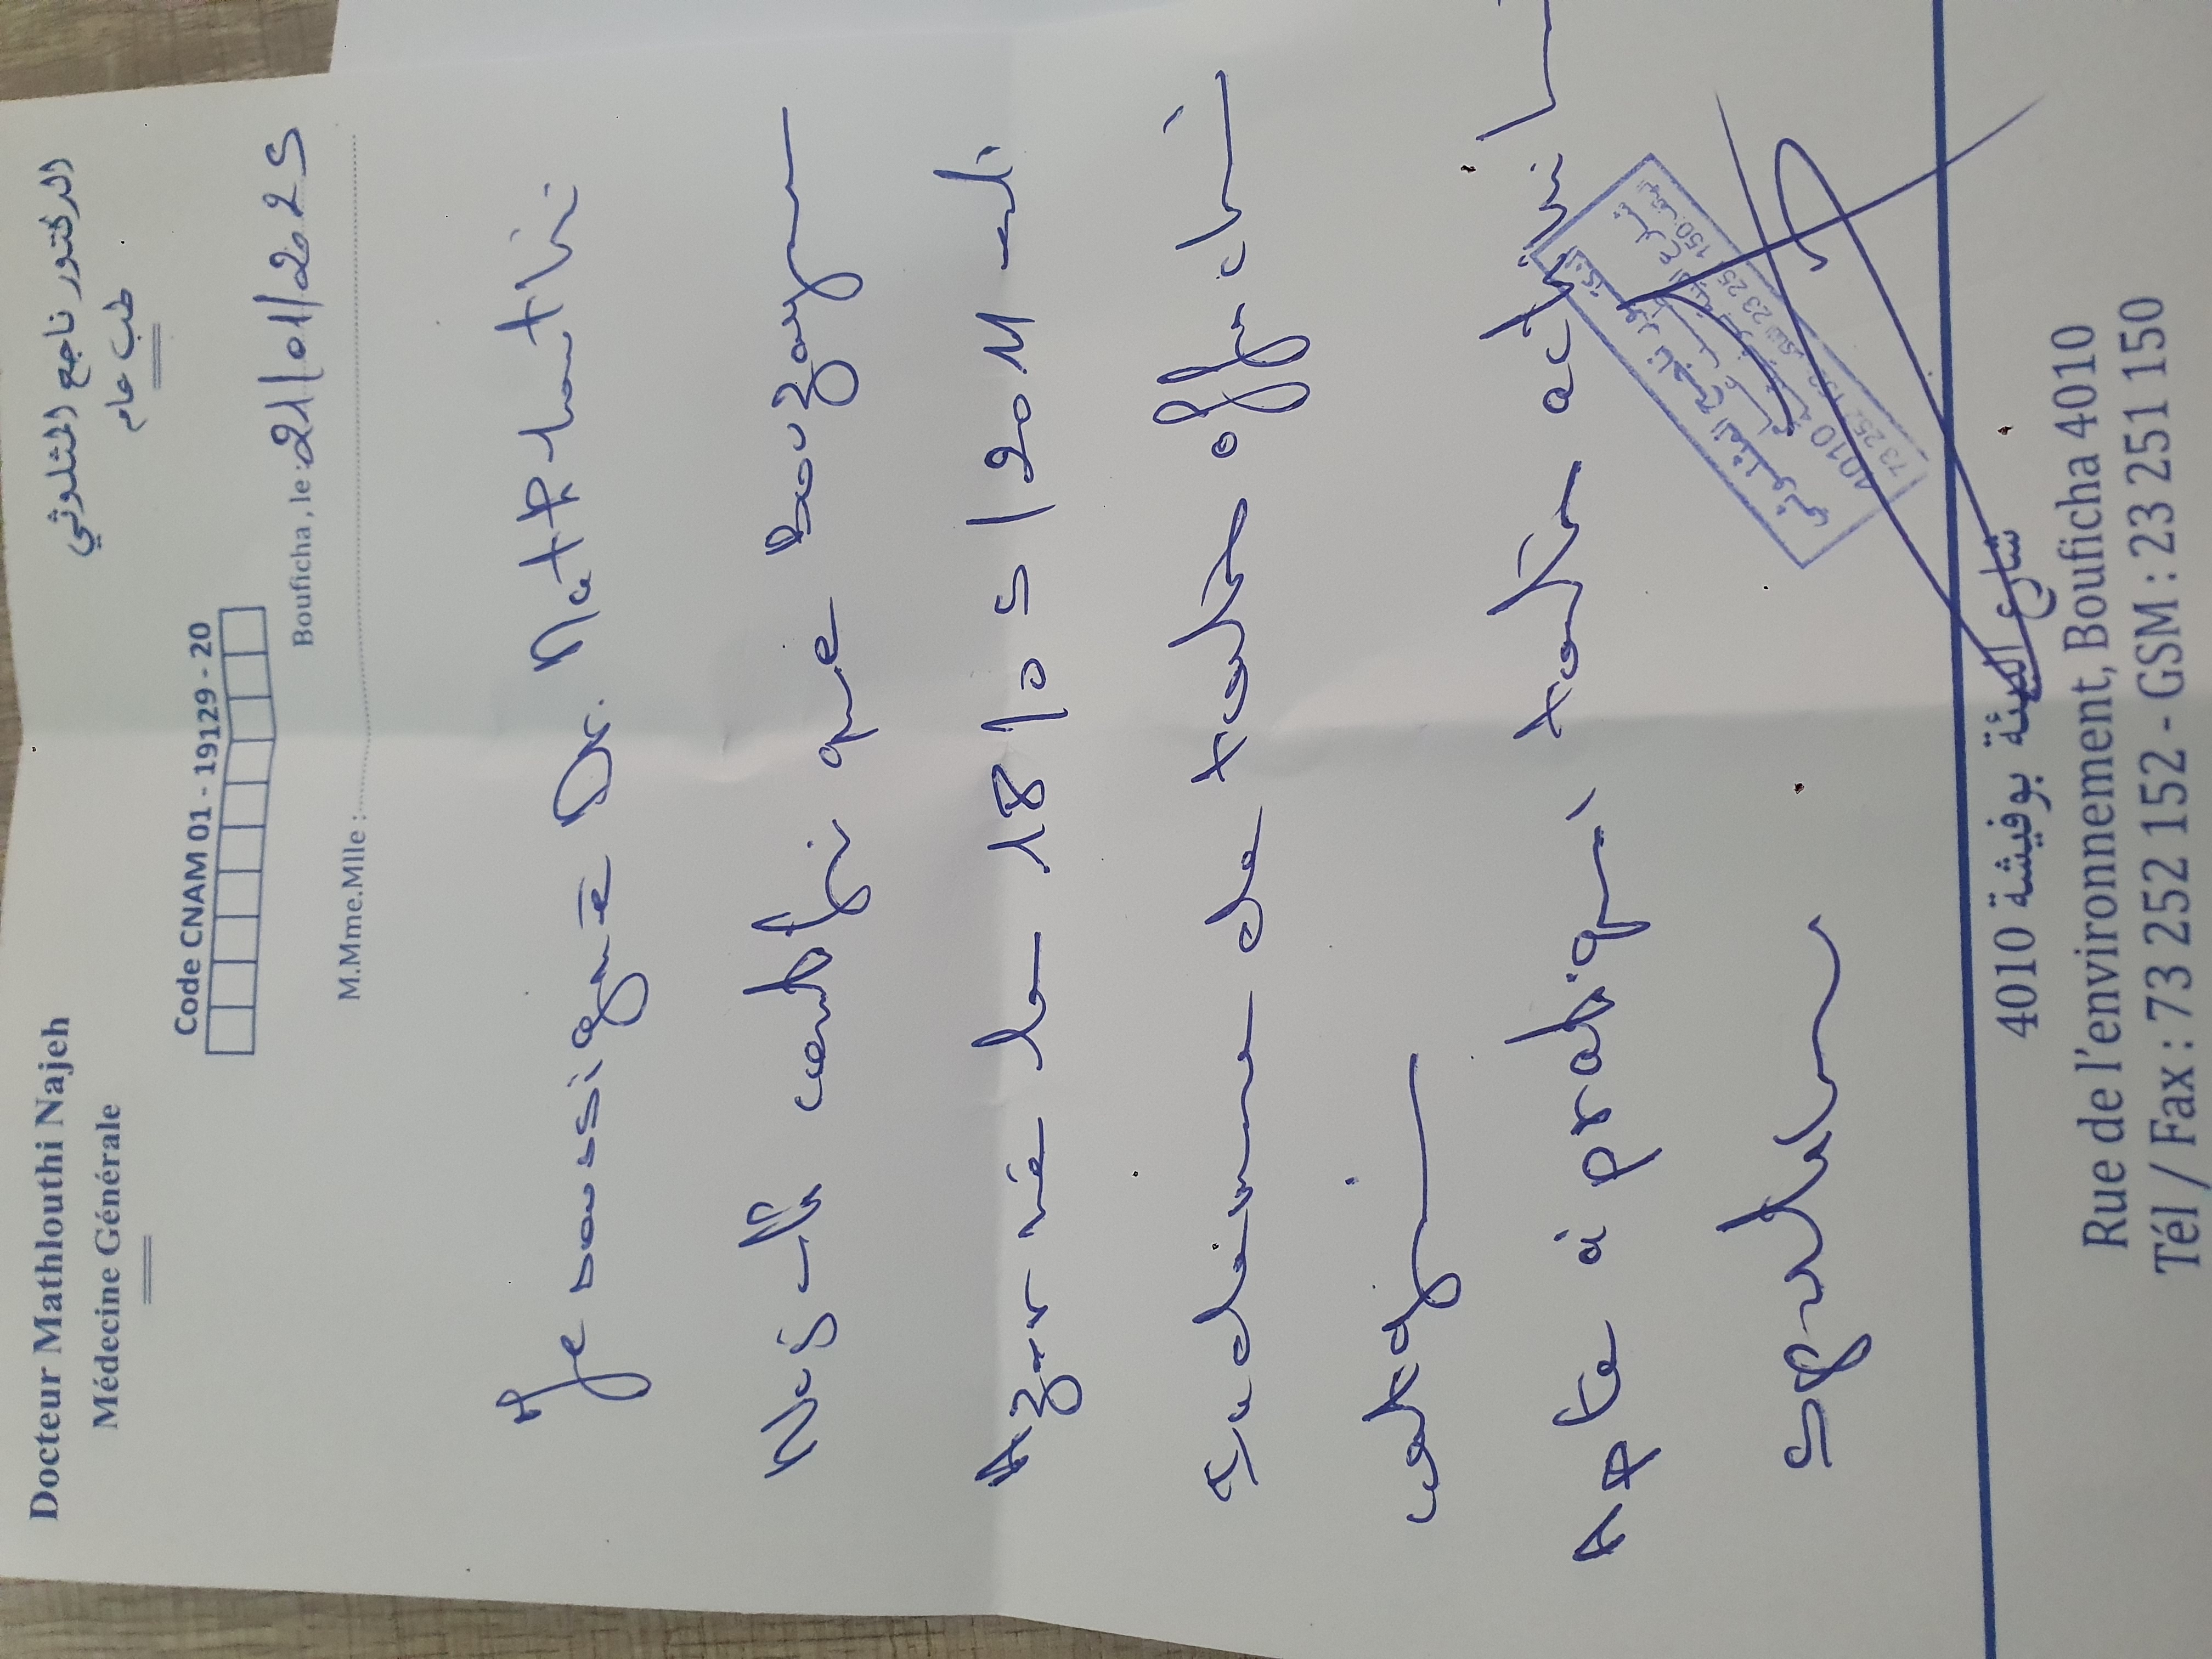 Docteur Mathlouthi Najeh
Médecine Générale
الدكتور ناجح المثلوثي
طب عام
Code CNAM 01 - 19129 - 20
Bouficha, le : 21/01/2025
M.Mme.Mlle :
Je soussigné Dr. Mathlouthi
certifie que Bouzayen
né le 18/05/2011 est
indemne de toute
Apte à pratiquer toute activité
شارع البيئة بوفيشة 4010
Rue de l'environnement, Bouficha 4010
Tél / Fax : 73 252 152 - GSM : 23 251 150